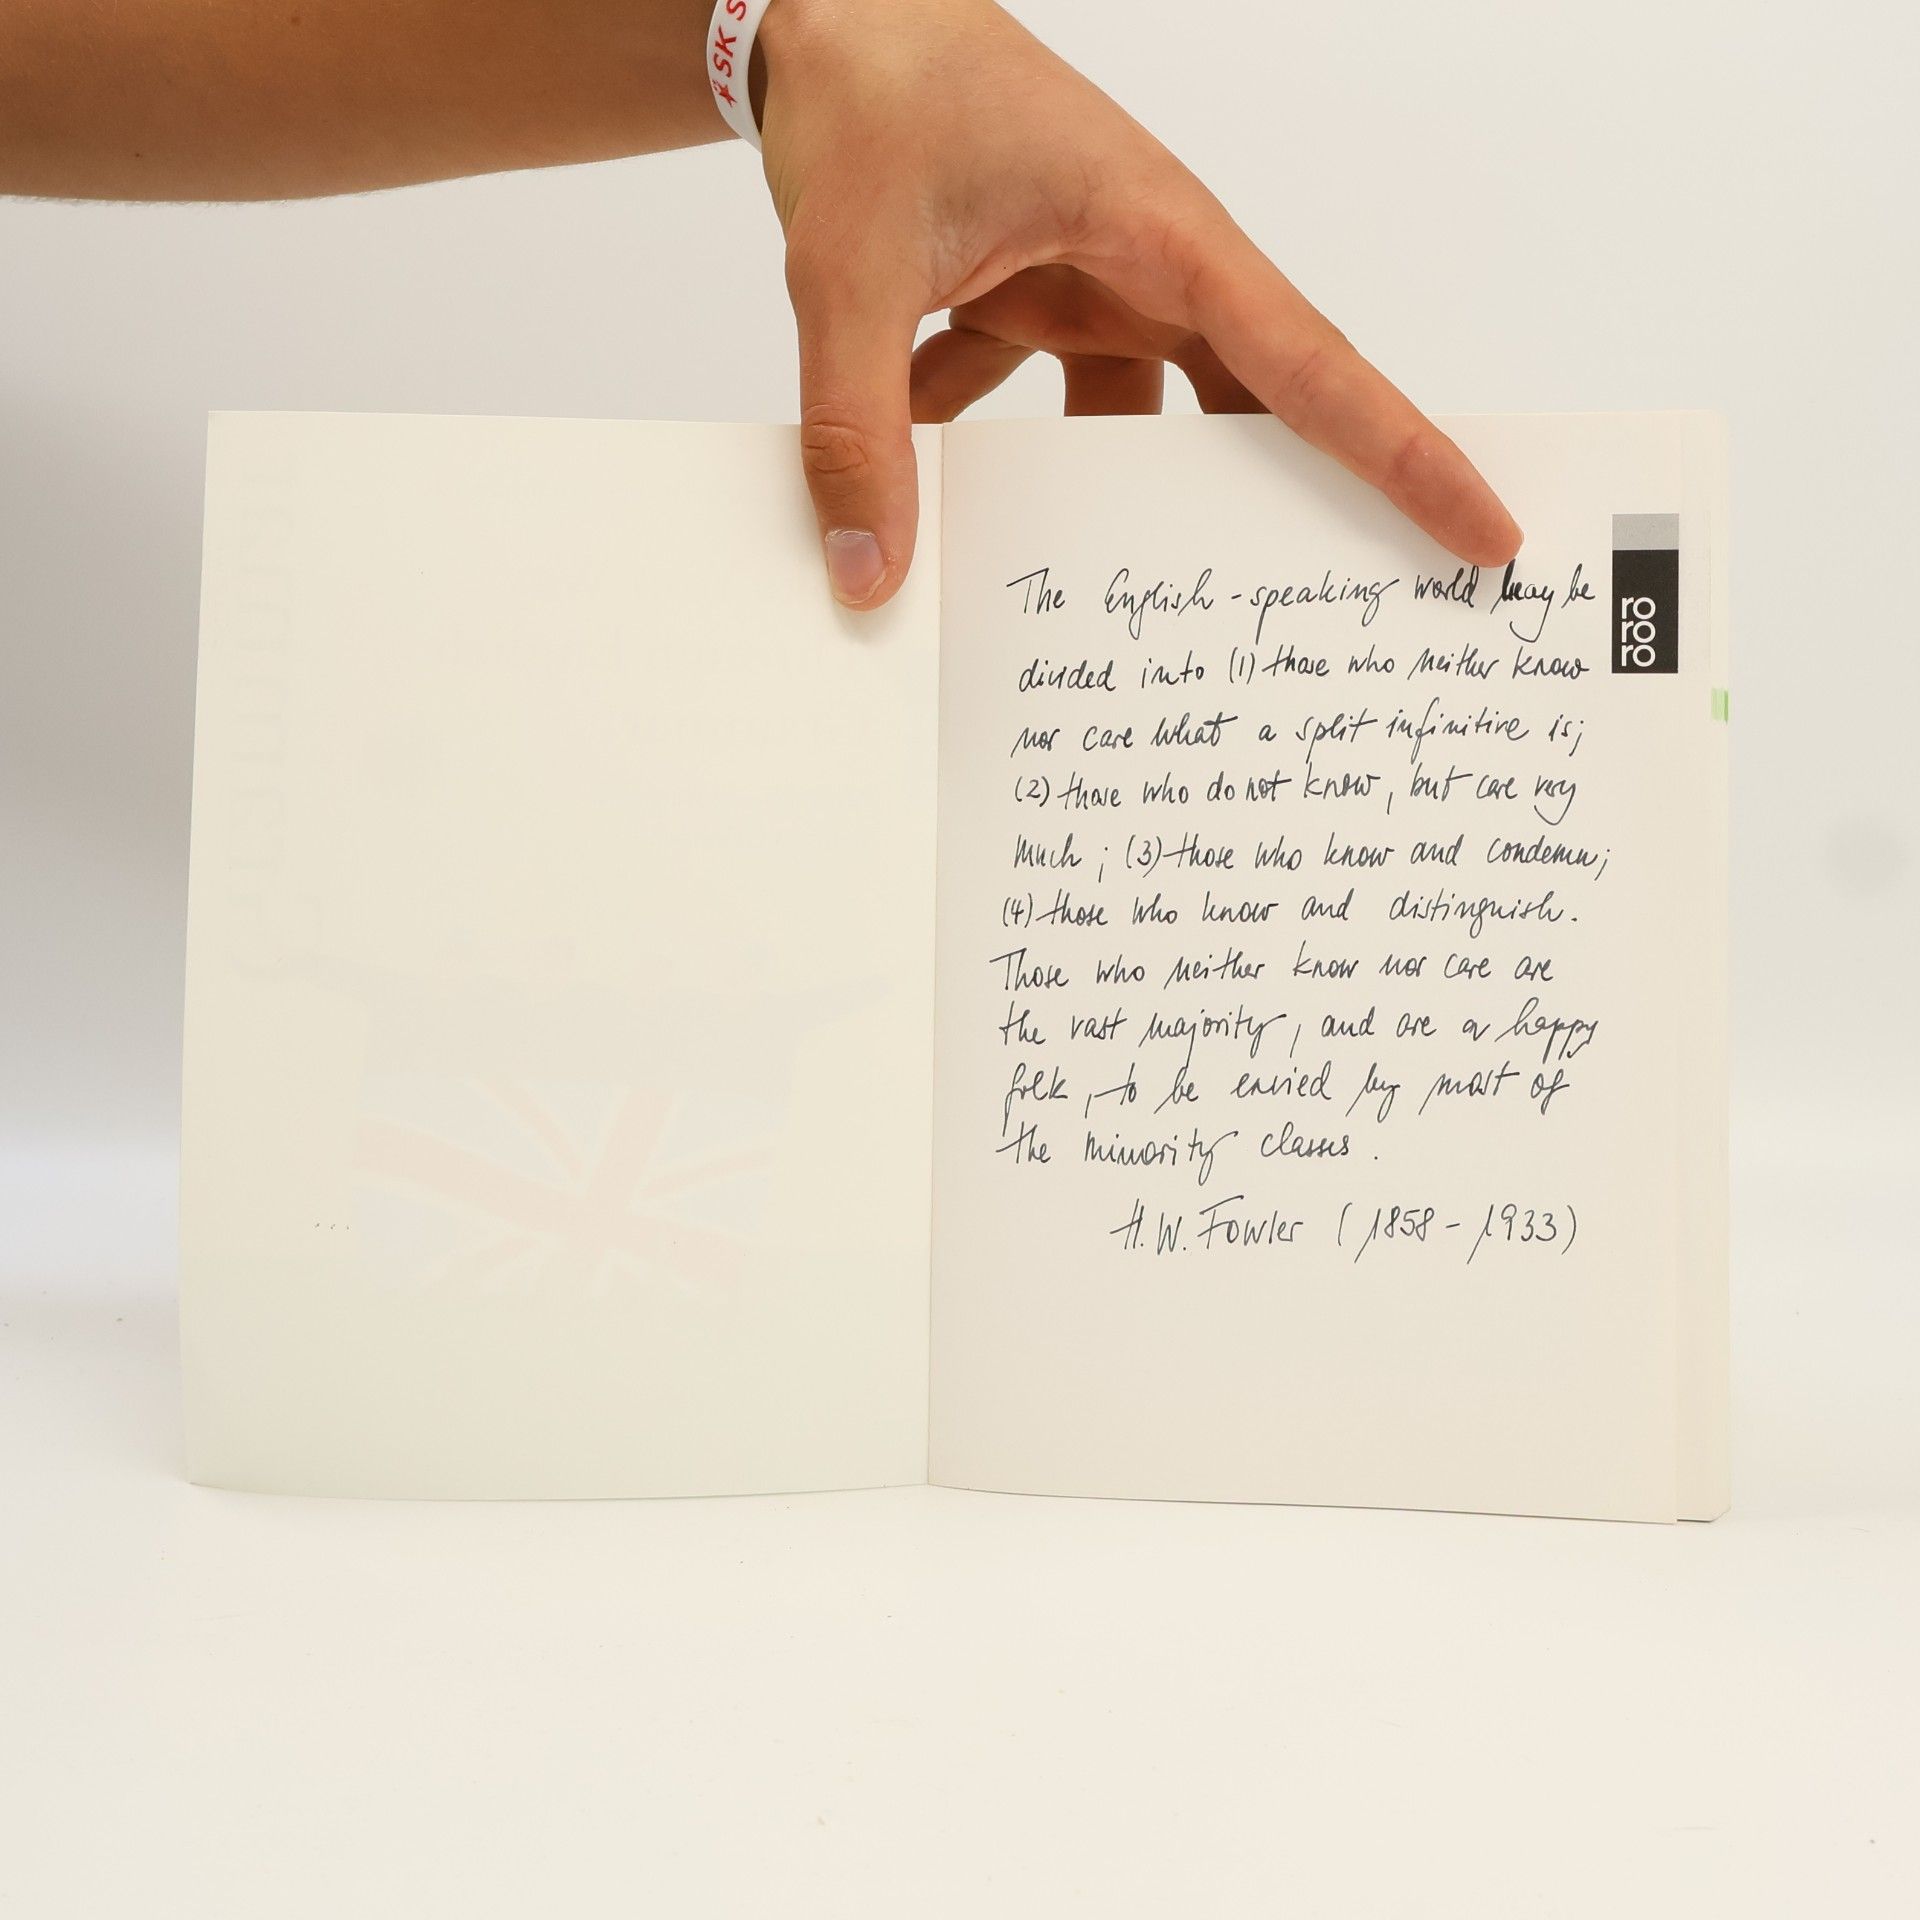 SK S
The English-speaking world may be
ro
ro
ro
divided into (1) those who neither know
nor care what a split infinitive is;
(2) those who do not know, but care very
much; (3) those who know and condemn;
(4) those who know and distinguish.
Those who neither know nor care are
the vast majority, and are a happy
folk, to be envied by most of
the minority classes.
H. W. Fowler (1858 - 1933)